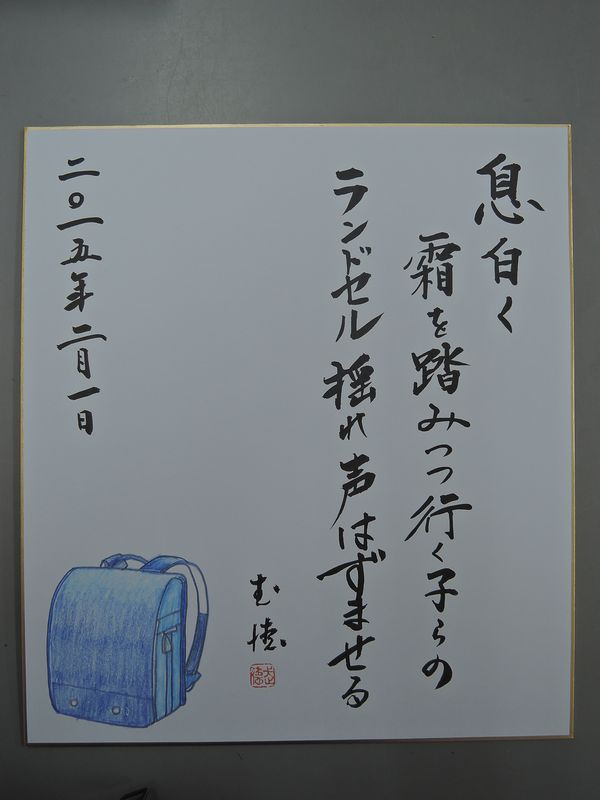 息白く
霜を踏みつつ行く子らの
ランドセル揺れ声はずませる
二〇一五年二月一日